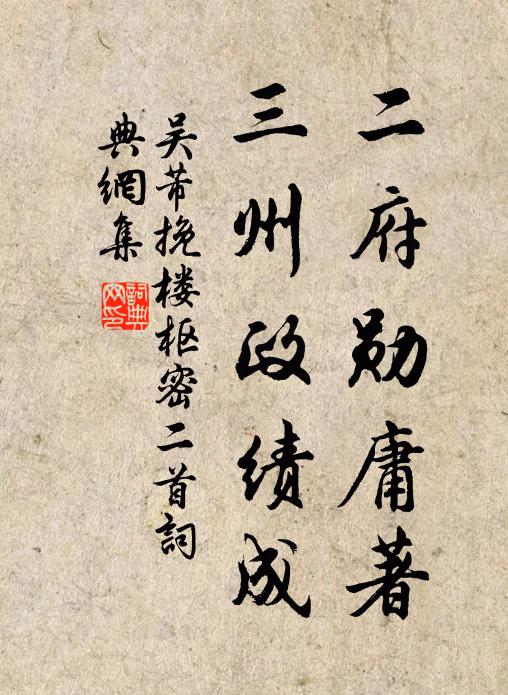 二府勋庸著
三州政绩成
吴芾挽楼枢密二首詞
典網集
詞典
网印